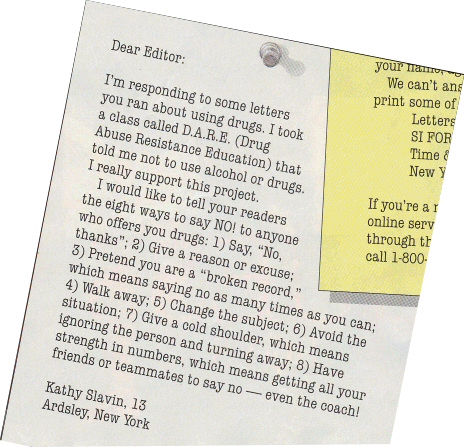 Dear Editor:
I'm responding to some letters
you ran about using drugs. I took
a class called D.A.R.E. (Drug
Abuse Resistance Education) that
told me not to use alcohol or drugs.
I really support this project.
I would like to tell your readers
the eight ways to say NO! to anyone
who offers you drugs: 1) Say, “No,
thanks”; 2) Give a reason or excuse;
3) Pretend you are a “broken record,”
which means saying no as many times as you can;
4) Walk away; 5) Change the subject; 6) Avoid the
situation; 7) Give a cold shoulder, which means
ignoring the person and turning away; 8) Have
strength in numbers, which means getting all your
friends or teammates to say no — even the coach!
Kathy Slavin, 13
Ardsley, New York
your name,
We can't ans
print some of
Letters
SI FOR
Time &
New Y
If you're a
online serv
through th
call 1-800-